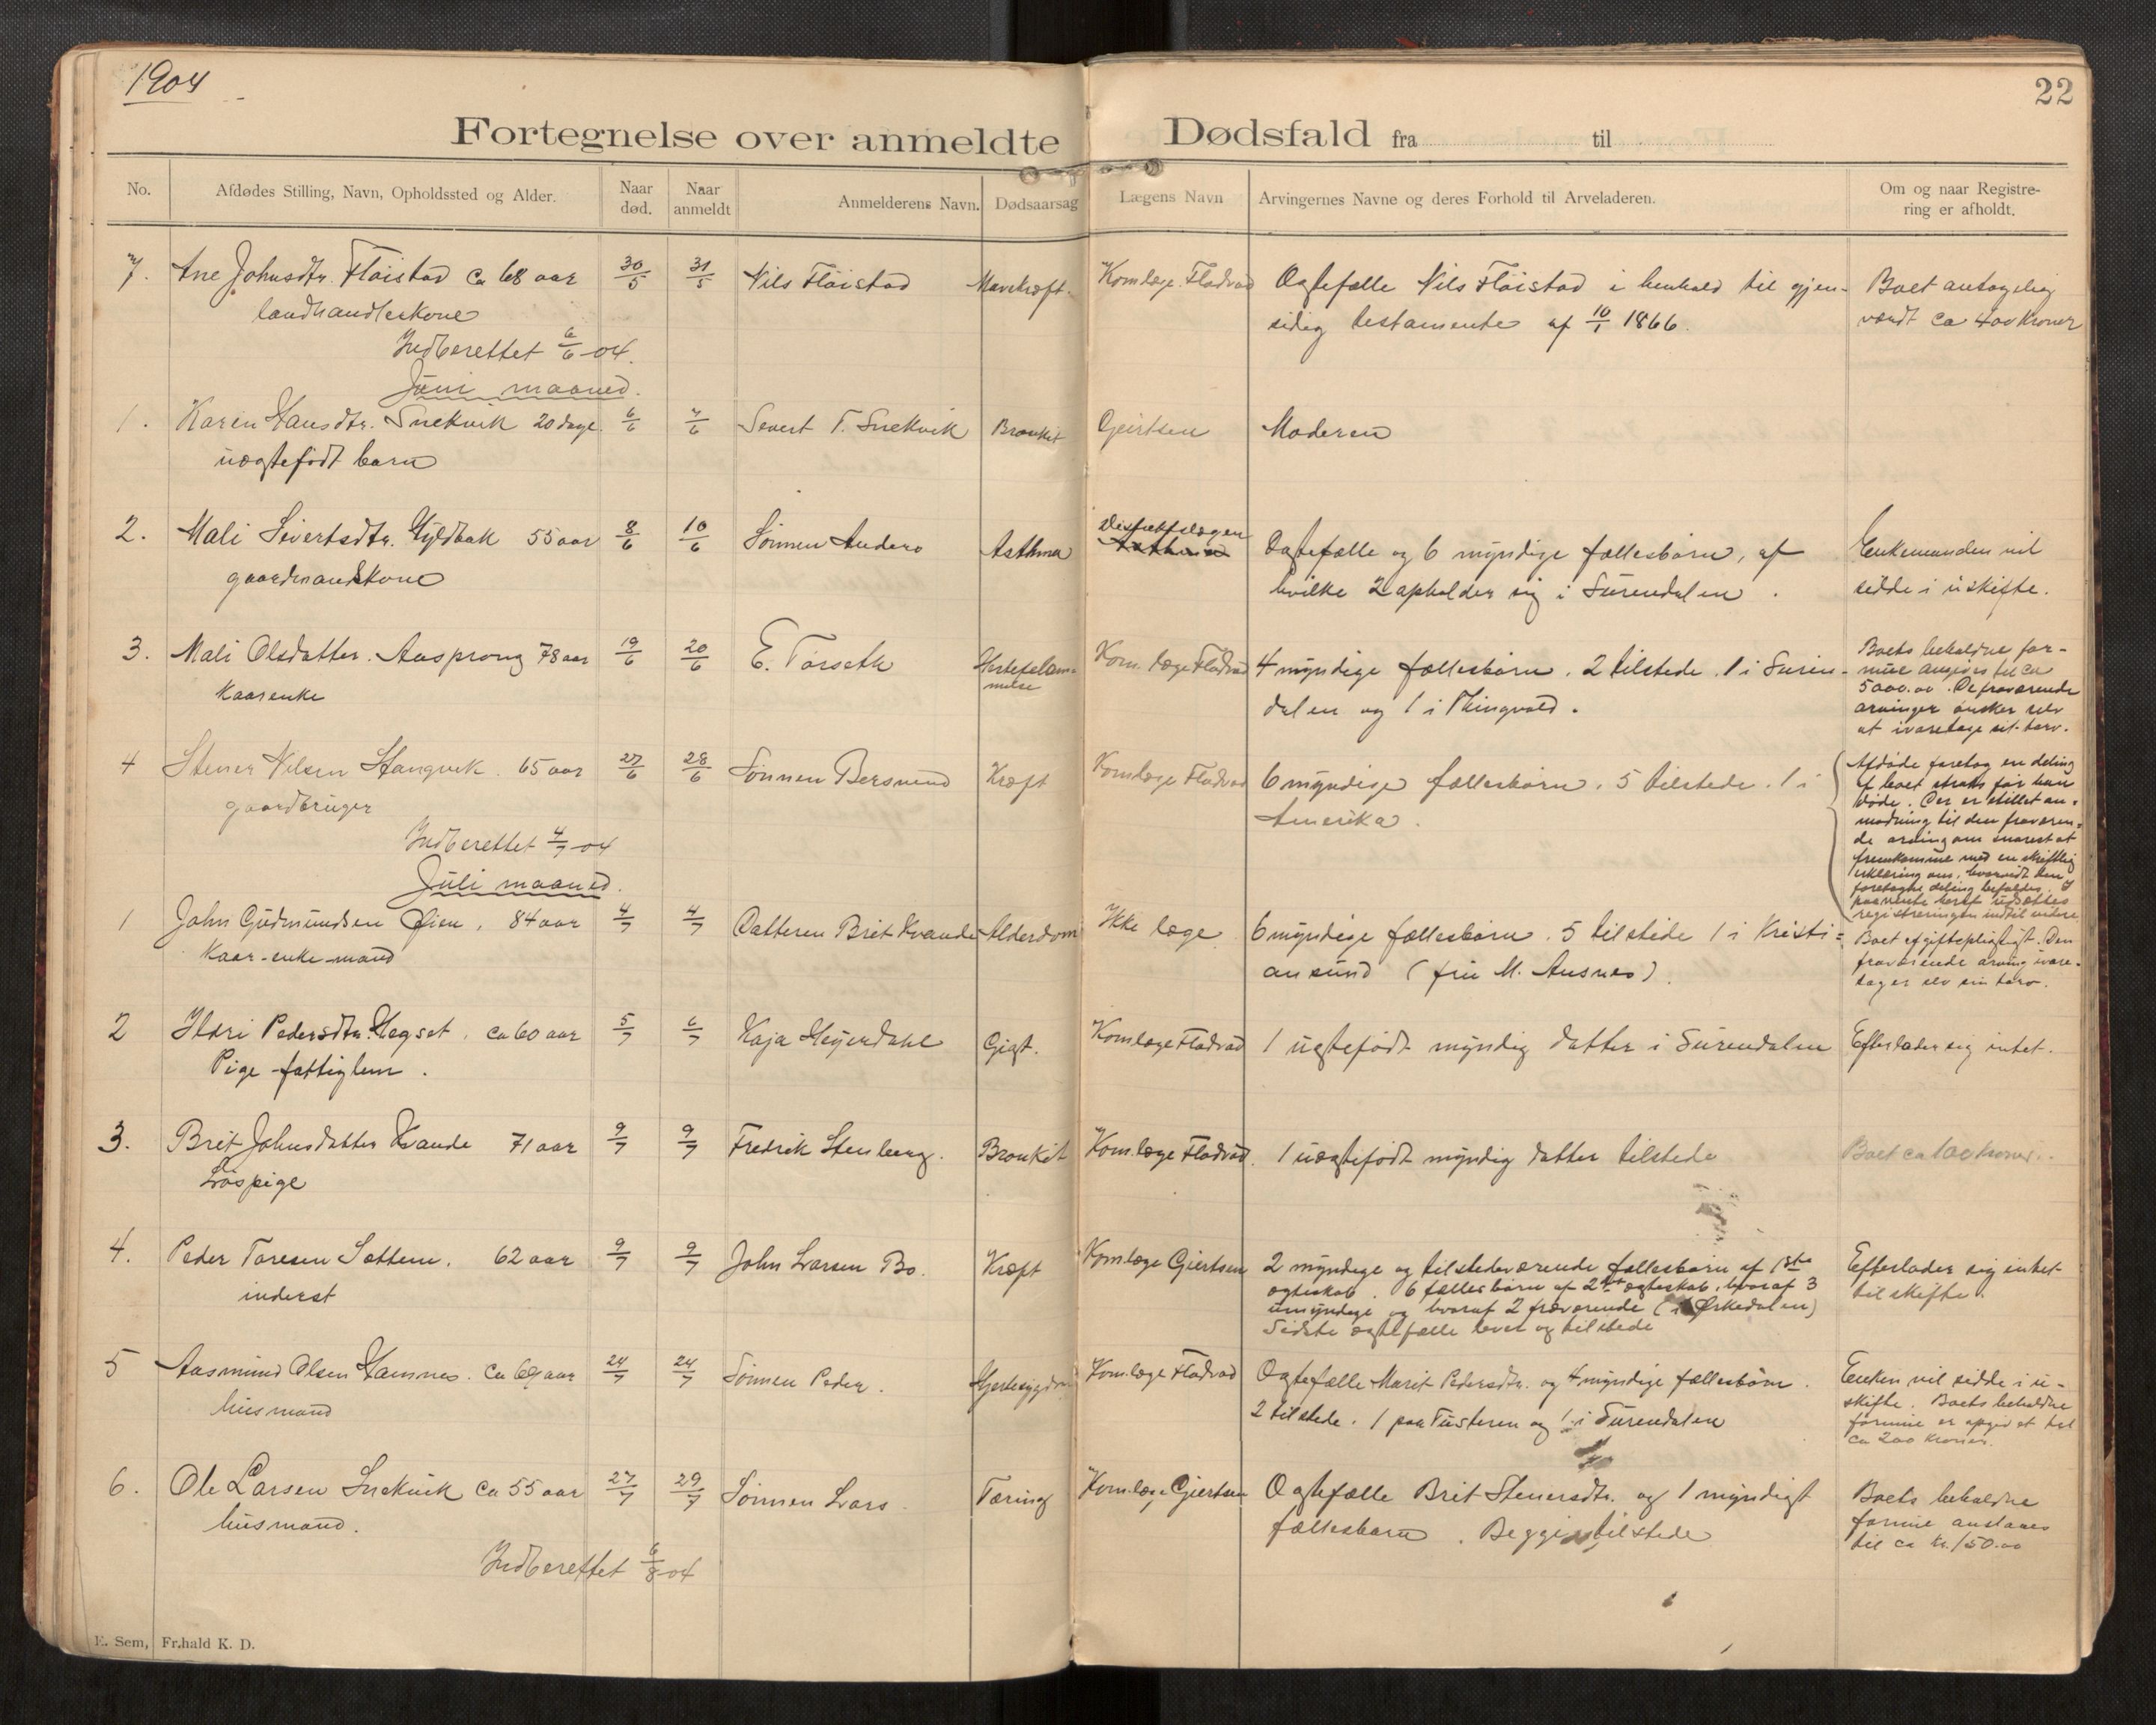 1904
22
Fortegnelse over anmeldte Dødsfald fra til
No.
Afdødes Stilling, Navn, Opholdssted og Alder.
Naar død.
Naar anmeldt
Anmelderens Navn.
Dødsaarsag
Lægens Navn
Arvingernes Navne og deres Forhold til Arveladeren.
Om og naar Registrering er afholdt.
7. Ane Johnsdtr. Fløistad ca 68 aar 30/5 31/5 Nils Fløistad Mavekræft Kom.læge Fladvad Ægtefælle Nils Fløistad i henhold til gjen- Boet antagelig
landhandlerkone sidig testamente af 10/1 1866. værdt ca 400 kroner
Indberettet 6/6-04.
Juni maaned.
1. Karen Hansdtr. Snekvik 20 dage 6/6 7/6 Severt T. Snekvik Bronkit Gjertsen Moderen
uægtefødt barn
2. Mali Sivertsdtr. 55 aar 8/6 10/6 Sønnen Anders Asthma Distriktslægen Ægtefælle og 6 myndige fællesbørn, af Enkemanden vil
gaardmandskone hvilke 2 opholder sig i Surendalen. sidde i uskifte.
3. Mali Olsdatter Aasprong 78 aar 19/6 20/6 E. Torseth Kom.læge Fladvad 4 myndige fællesbørn. 2 tilstede. 1 i Suren-
Kaarenke dalen og 1 i Thingvold.
Boets beholdne for-
mue angives til ca
5000.00. De fraværende
arvinger ønsker selv
at ivaretage sit tarv.
4 Stener Nilsen Stangvik. 65 aar 27/6 28/6 Sønnen Bersvend Kræft Kom.læge Fladvad 6 myndige fællesbørn. 5 tilstede. 1 i
gaardbruger Amerika.
Afdøde foretog en deling
af boet straks før han
døde. Der er stillet an-
modning til den fraværen-
de arving om snarest at
fremkomme med en skriftlig
erklæring om, hvorvidt den
foretagne deling
udsættes
registreringen indtil videre
Indberettet 4/7-04
Juli maaned.
1 John Gudmundsen Øien, 84 aar 4/7 4/7 Datteren Brit Kvande Alderdom Ikke læge 6 myndige fællesbørn. 5 tilstede 1 i Kristi-
Kaar-enke-mand ansund (fru M. Ausnes).
Boet afgiftspligtigt. Den
fraværende arving ivare-
tager selv sin tarv.
2 Pedersdtr. Hegset. ca 60 aar 5/7 6/7 Kaja Heyerdahl Gigt. Kom.læge Fladvad 1 uægtefødt myndig datter i Surendalen Efterlader sig intet.
Pige-fattiglem.
3. Brit Johnsdatter Kvande 71 aar 9/7 9/7 Fredrik Stenberg. Bronkit Kom.læge Fladvad. 1 uægtefødt myndig datter tilstede Boet ca 100 kroner.
Løspige
4. Peder Toresen Sættem. 62 aar 9/7 9/7 John Larsen Bo. Kræft Kom.læge Gjertsen 2 myndige og tilstedeværende fællesbørn af 1ste Efterlader sig intet
inderst ægteskab. 6 fællesbørn af 2det ægteskab, hvoraf 3 til skifte.
umyndige og hvoraf 2 fraværende (i Ørkedalen)
Sidste ægtefælle lever og tilstede
5 Aasmund Olsen Hamnes. ca 69 aar 24/7 24/7 Sønnen Peder. Hjertesygdom Kom.læge Fladvad Ægtefælle Marit Pedersdtr. og 4 myndige fællesbørn. Enken vil sidde i u-
husmand 2 tilstede. 1 paa Tusteren og 1 i Surendalen skifte. Boets beholdne
formue er opgivet til
ca 200 kroner.
6. Ole Larsen Snekvik ca 55 aar 27/7 29/7 Sønnen Lars Tæring Kom.læge Gjertsen Ægtefælle Brit Stenersdtr. og 1 myndigt Boets beholdne
husmand. fællesbarn. Begge tilstede formue anslaaes
til ca kr. 150.00
Indberettet 6/8-04
E. Sem, Fr.hald K. D.